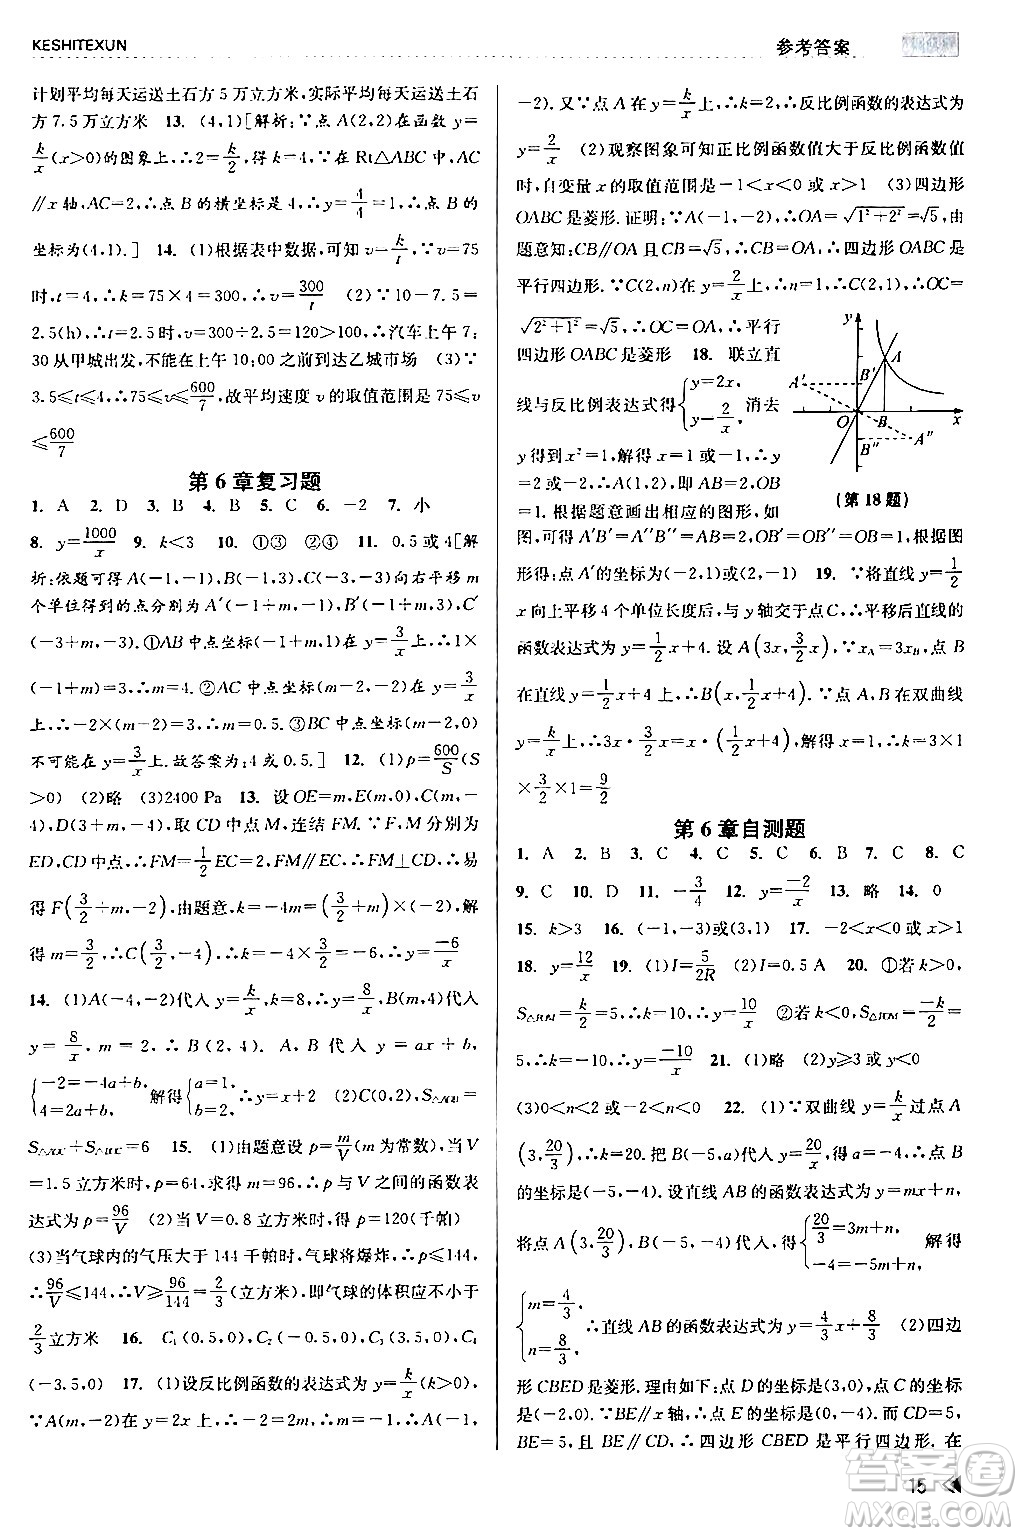 KESHITEXUN
参考答案
计划平均每天运送土石方 5 万立方米,实际平均每天运送土石
方 7.5 万立方米 13. (4,1)[解析:∵点 A(2,2)在函数 y=
k/x(x>0)的图象上,∴2=k/2,得 k=4,∵在 Rt△ABC 中,AC
∥x 轴,AC=2,∴点 B 的横坐标是 4,∴y=4/4=1,∴点 B 的
坐标为(4,1).] 14. (1)根据表中数据,可知 v=k/t,∵v=75
时,t=4,∴k=75×4=300,∴v=300/t (2)∵10-7.5=
2.5(h),∴t=2.5时,v=300÷2.5=120>100,∴汽车上午 7:
30 从甲城出发,不能在上午 10:00 之前到达乙城市场 (3)∵
3.5≤t≤4,∴75≤v≤600/7,故平均速度 v 的取值范围是 75≤v
≤600/7
第 6 章复习题
1. A 2. D 3. B 4. B 5. C 6. -2 7. 小
8. y=1000/x 9. k<3 10. ①③ ②④ 11. 0.5 或 4[解
析:依题可得 A(-1,-1),B(-1,3),C(-3,-3)向右平移 m
个单位得到的点分别为 A′(-1+m,-1),B′(-1+m,3),C′
(-3+m,-3).①AB 中点坐标(-1+m,1)在 y=3/x上,∴1×
(-1+m)=3,∴m=4.②AC 中点坐标(m-2,-2)在 y=3/x
上,∴-2×(m-2)=3,∴m=0.5.③BC 中点坐标(m-2,0)
不可能在 y=3/x上.故答案为:4 或 0.5.] 12. (1)p=600/S(S
>0) (2)略 (3)2400 Pa 13. 设 OE=m,E(m,0),C(m,-
4),D(3+m,0),取 CD 中点 M,连结 FM.∵F,M 分别是
ED,CD 中点,∴FM=1/2EC=2,FM∥EC,∴FM⊥OD,∴可
得 F(3/2+m,-2),由题意,得-4m=-2(3/2+m)=k,解
得 m=3/2,∴C(3/2,-4),∴k=-4×(3/2)=-6,∴y=-6/x
14. (1)A(-4,-2)代入 y=k/x,k=8,∴y=8/x,B(m,4)代入
y=8/x,m=2,∴B(2,4). A,B 代入 y=ax+b,
{-2=-4a+b, 4=2a+b, 解得{a=1, b=2, ∴y=x+2 (2)C(0,2),S△AOB=
S△AOC+S△BOC=6 15. (1)由题意设 p=m/V(m 为常数),当 V
=1.5 立方米时,p=64,求得 m=96,∴p 与 V 之间的函数表
达式为 p=96/V (2)当 V=0.8 立方米时,得 p=120(千帕)
(3)当气球内的气压大于 144 千帕时,气球将爆炸,∴p≤144,
∴96/V≤144,∴V≥96/144=2/3(立方米),∴气球的体积应不小于
2/3立方米 16. C₁(0.5,0),C₂(-0.5,0),C₃(3.5,0),C₄
(-3.5,0) 17. (1)设反比例函数的表达式为 y=k/x(k>0),
∵A(m,-2)在 y=2x 上,∴-2=2m,∴m=-1,∴A(-1,
-2).又∵点 A 在 y=k/x上,∴k=2,∴反比例函数的表达式为
y=2/x (2)观察图象可知正比例函数值大于反比例函数值
时,自变量 x 的取值范围是-1<x<0 或 x>1 (3)四边形
OABC 是菱形.证明:∵A(-1,-2),∴OA=√1²+2²=√5,由
题意知:CB∥OA 且 CB=√5,∴CB=OA,∴四边形 OABC 是
平行四边形.∵C(2,n)在 y=2/x上,∴n=1,∴C(2,1),OC=
√2²+1²=√5,∴OC=OA,∴平行
四边形 OABC 是菱形 18. 联立直
线与反比例表达式得{y=2x, y=2/x, 消去
y 得到 x²=1,解得 x=1 或-1,∴y
=2 或-2,∴A(1,2),即 AB=2,OB
=1.根据题意画出相应的图形,如
图,可得 A′B′=A″B″=AB=2,OB′=OB″=OB=1,根据图
形得:点 A′的坐标为(-2,1)或(2,-1) 19. ∵将直线 y=1/2
x 向上平移 4 个单位长度后,与 y 轴交于点 C,∴平移后直线的
函数表达式为 y=1/2x+4.设 A(3x,3/2x),∵xA=3xB,点 B
在直线 y=1/2x+4 上,∴B(x,1/2x+4).∵点 A、B 在双曲线
y=k/x上,∴3x·3/2x=x·(1/2x+4),解得 x=1,∴k=3×1
×3/2×1=9/2
y
A
A′
B′
O
B
x
B″
A″
(第 18 题)
第 6 章自测题
1. A 2. B 3. C 4. C 5. C 6. B 7. C 8. C
9. C 10. D 11. -3/4 12. y=-2/x 13. 略 14. 0
15. k>3 16. (-1,-3)或(3,1) 17. -2<x<0 或 x>1
18. y=12/x 19. (1)I=5/2R (2)I=0.5 A 20. ①若 k>0,
S△BOM=k/2=5,∴k=10,∴y=10/x ②若 k<0,S△BOM=-k/2=
5,∴k=-10,∴y=-10/x 21. (1)略 (2)y≥3 或 y<0
(3)0<n<2 22. (1)∵双曲线 y=k/x过点 A
(3,20/3),∴k=20.把 B(-5,a)代入 y=20/x,得 a=-4,∴点 B
的坐标是(-5,-4).设直线 AB 的函数表达式为 y=mx+n,
将点 A(3,20/3),B(-5,-4)代入得{20/3=3m+n, -4=-5m+n, 解得
{m=4/3, n=8/3, ∴直线 AB 的函数表达式为 y=4/3x+8/3 (2)四边
形 CBED 是菱形.理由如下:点 D 的坐标是(3,0),点 C 的坐标是
(-2,0).∵BE∥x 轴,∴点 E 的坐标是(0,-4).而 CD=5,
BE=5,且 BE∥CD,∴四边形 CBED 是平行四边形.在
15
答案圈
MXQE.COM